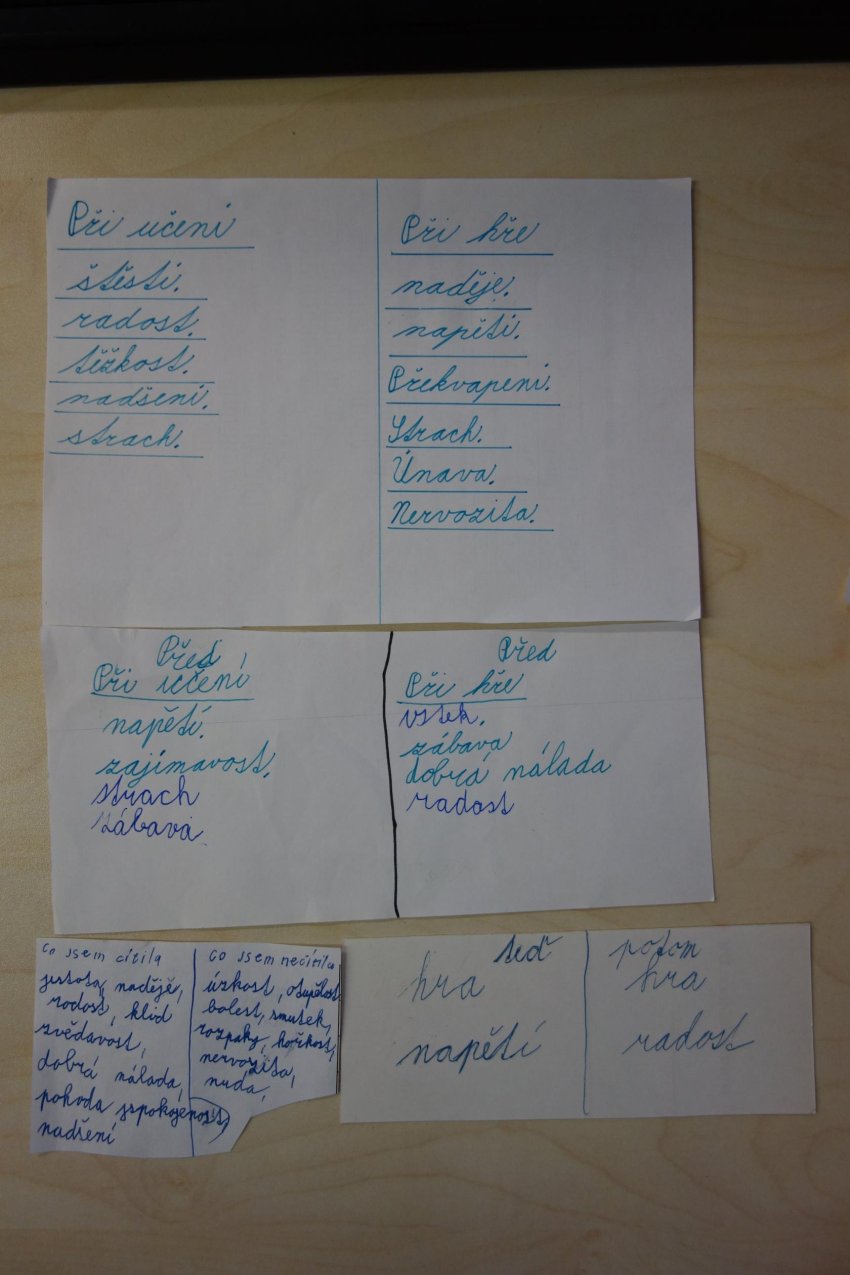 Při učení
štěstí.
radost.
těžkost.
nadšení.
strach.
Při hře
naděje.
napětí.
Překvapení.
Strach.
Únava.
Nervozita.
Před
Při učení
napětí.
zajímavost.
strach
zábava
Před
Při hře
vztek.
zábava
dobrá nálada
radost
co jsem cítila
jistota, naděje,
radost, klid
zvědavost,
dobrá nálada,
pohoda, spokojenost,
nadšení
co jsem necítila
úzkost, otupělost
bolest, smutek,
rozpaky, hořkost,
nervozita,
nuda,
teď
hra
napětí
potom
hra
radost